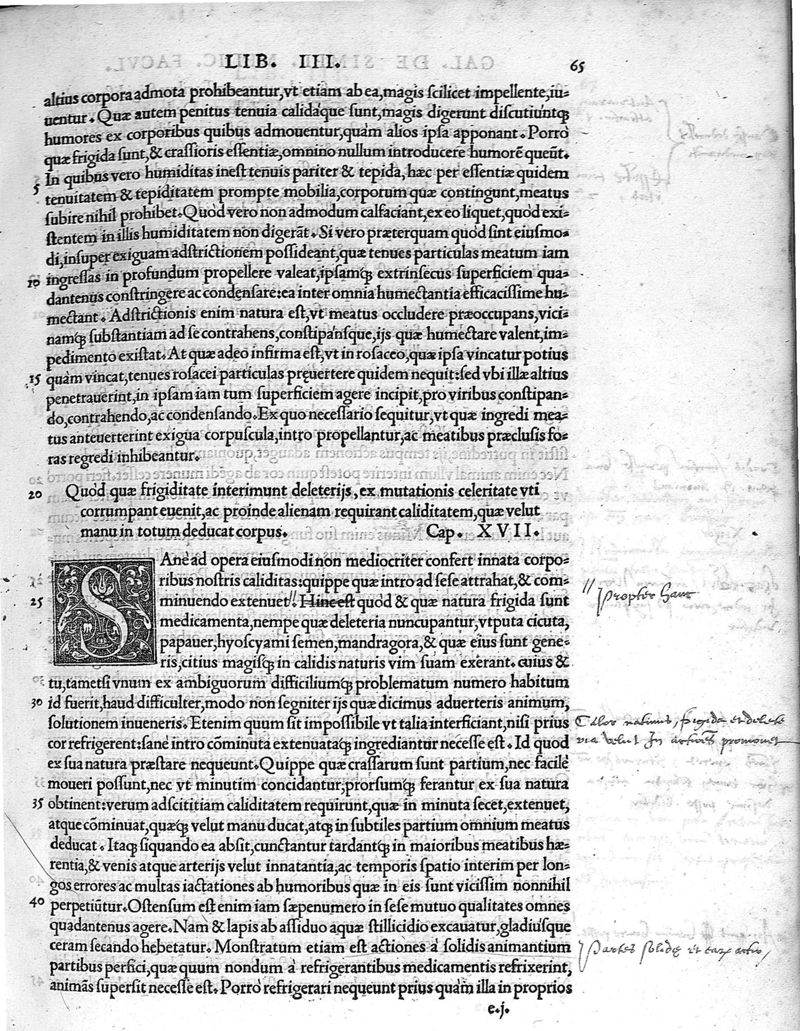 LIB. III. 65
altius corpora admota prohibeantur, vt etiam ab ea, magis scilicet impellente, iu-
uentur. Quæ autem penitus tenuia calidáque sunt, magis digerunt discutiúntq;
humores ex corporibus quibus admouentur, quàm alios ipsa apponant. Porrò
quæ frigida sunt, & crassioris essentiæ, omnino nullum introducere humorē queūt.
In quibus vero humiditas inest tenuis pariter & tepida, hæc per essentiæ quidem
5 tenuitatem & tepiditatem prompte mobilia, corporum quæ contingunt, meatus
subire nihil prohibet. Quòd vero non admodum calfaciant, ex eo liquet, quòd exi-
stentem in illis humiditatem non digerāt. Si vero præterquam quòd sint eiusmo-
di, insuper exiguam adstrictionem possideant, quæ tenues particulas meatum iam
10 ingressas in profundum propellere valeat, ipsamq; extrinsecus superficiem qua-
dantenus constringere ac condensare: ea inter omnia humectantia efficacissime hu-
mectant. Adstrictionis enim natura est, vt meatus occludere præoccupans, vici-
namq; substantiam ad se contrahens, constipánsque, ijs quæ humectare valent, im-
pedimento existat. At quæ adeo infirma est, vt in rosaceo, quæ ipsa vincatur potius
15 quàm vincat, tenues rosacei particulas pręuertere quidem nequit: sed vbi illæ altius
penetrauerint, in ipsam iam tum superficiem agere incipit, pro viribus constipan-
do, contrahendo, ac condensando. Ex quo necessario sequitur, vt quæ ingredi mea-
tus anteuerterint exigua corpuscula, intro propellantur, ac meatibus præclusis fo-
ras regredi inhibeantur.
20 Quòd quæ frigiditate interimunt deleterijs, ex mutationis celeritate vti
corrumpant euenit, ac proinde alienam requirant caliditatem, quæ velut
manu in totum deducat corpus. Cap. XVII.
SAnè ad opera eiusmodi non mediocriter confert innata corpo-
ribus nostris caliditas: quippe quæ intro ad sese attrahat, & com-
25 minuendo extenuet. Hinc est quòd & quæ natura frigida sunt
medicamenta, nempe quæ deleteria nuncupantur, vtputa cicuta,
papauer, hyoscyami semen, mandragora, & quæ eius sunt gene-
ris, citius magisq; in calidis naturis vim suam exerant. cuius &
tu, tametsi vnum ex ambiguorum difficiliumq; problematum numero habitum
30 id fuerit, haud difficulter, modo non segniter ijs quæ dicimus aduerteris animum,
solutionem inueneris. Etenim quum sit impossibile vt talia interficiant, nisi prius
cor refrigerent: sanè intro cōminuta extenuataq; ingrediantur necesse est. Id quod
ex sua natura præstare nequeunt. Quippe quæ crassarum sunt partium, nec facile
moueri possunt, nec vt minutim concidantur; prorsumq; ferantur ex sua natura
35 obtinent: verum adscititiam caliditatem requirunt, quæ in minuta secet, extenuet,
atque cōminuat, quæq; velut manu ducat, atq; in subtiles partium omnium meatus
deducat. Itaq; siquando ea absit, cunctantur tardantq; in maioribus meatibus hæ-
rentia, & venis atque arterijs velut innatantia, ac temporis spatio interim per lon-
gos errores ac multas iactationes ab humoribus quæ in eis sunt vicissim nonnihil
40 perpetiūtur. Ostensum est enim iam sæpenumero in sese mutuo qualitates omnes
quadantenus agere. Nam & lapis ab assiduo aquæ stillicidio excauatur, gladiusque
ceram secando hebetatur. Monstratum etiam est actiones à solidis animantium
partibus perfici, quæ quum nondum à refrigerantibus medicamentis refrixerint,
animās supersit necesse est. Porrò refrigerari nequeunt prius quàm illa in proprios
e.j.
// propter hanc
Calor nativus, frigida et deleteria
via velut in promovet
Partes solidę et earū actio,